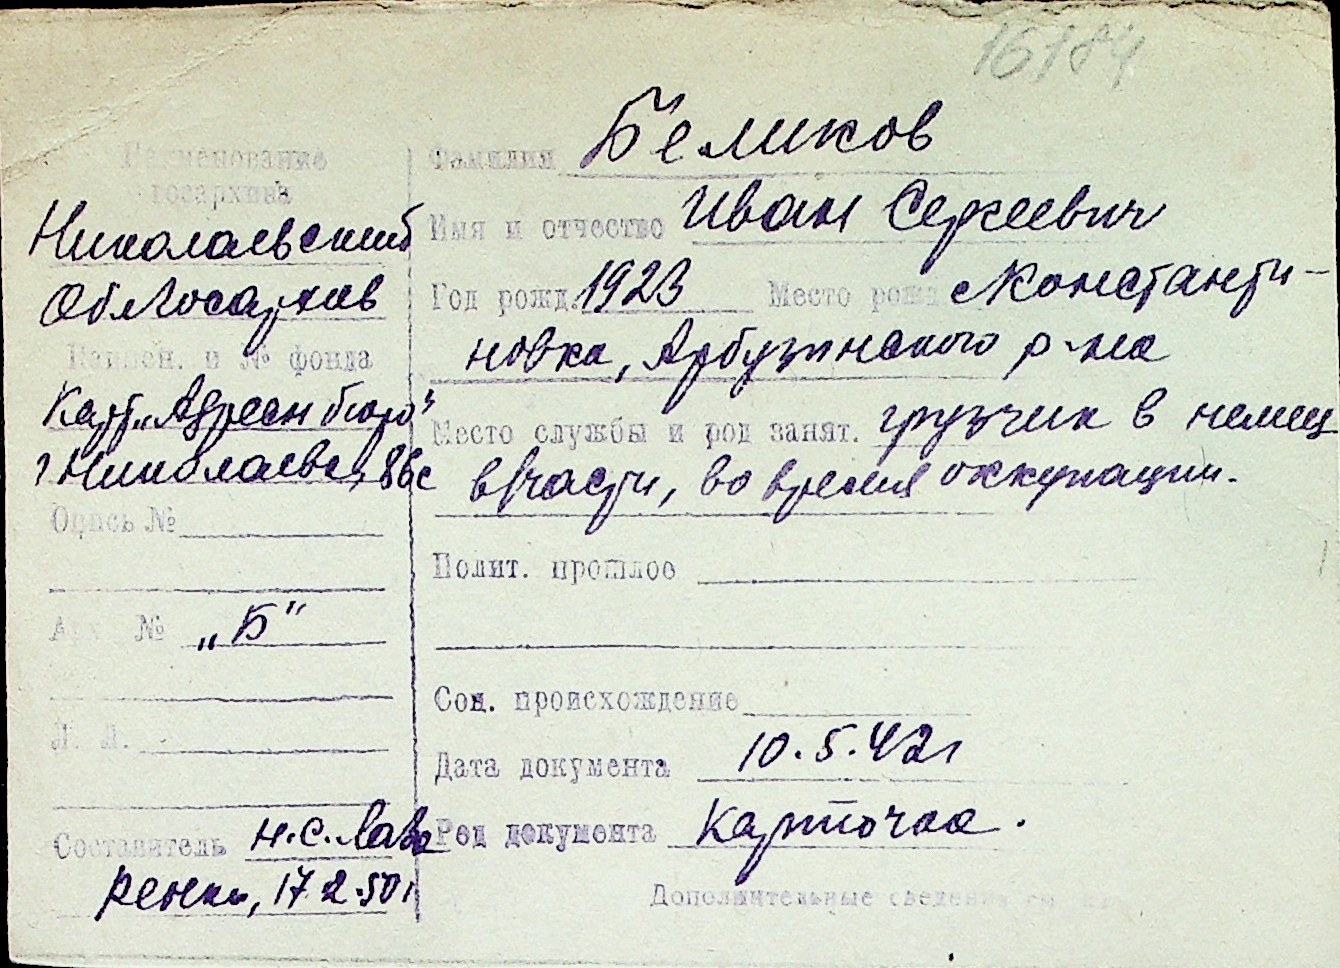 16184
Наименование
госархива
Николаевский
Облгосархив
Наимен. и № фонда
Карт. „Адресн бюро"
г Николаева, 86с
Опись №
Арх. №  „Б"
Л. Л.
Составитель н.с. Лав
ренки, 17 2.50г
Фамилия Беликов
Имя и отчество Иван Сергеевич
Год рожд. 1923 Место рожд с Константи-
новка, Арбузинского р-на
Место службы и род занят. грузчик в немец
в/части, во время оккупации.
Полит. прошлое
Соц. происхождение
Дата документа 10.5.42г
Род документа карточка.
Дополнительные сведения